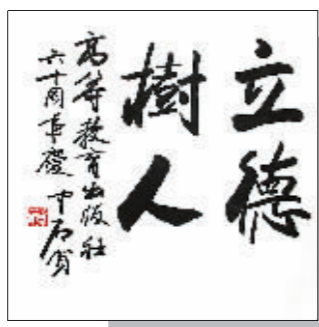 立德
樹人
高等教育出版社
六十周年慶 中石賀